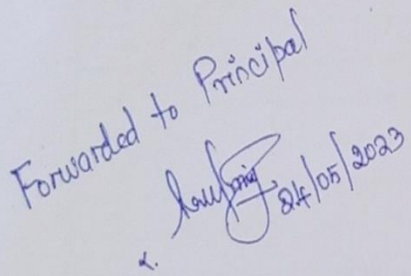 Forwarded to Principal
24/05/2023